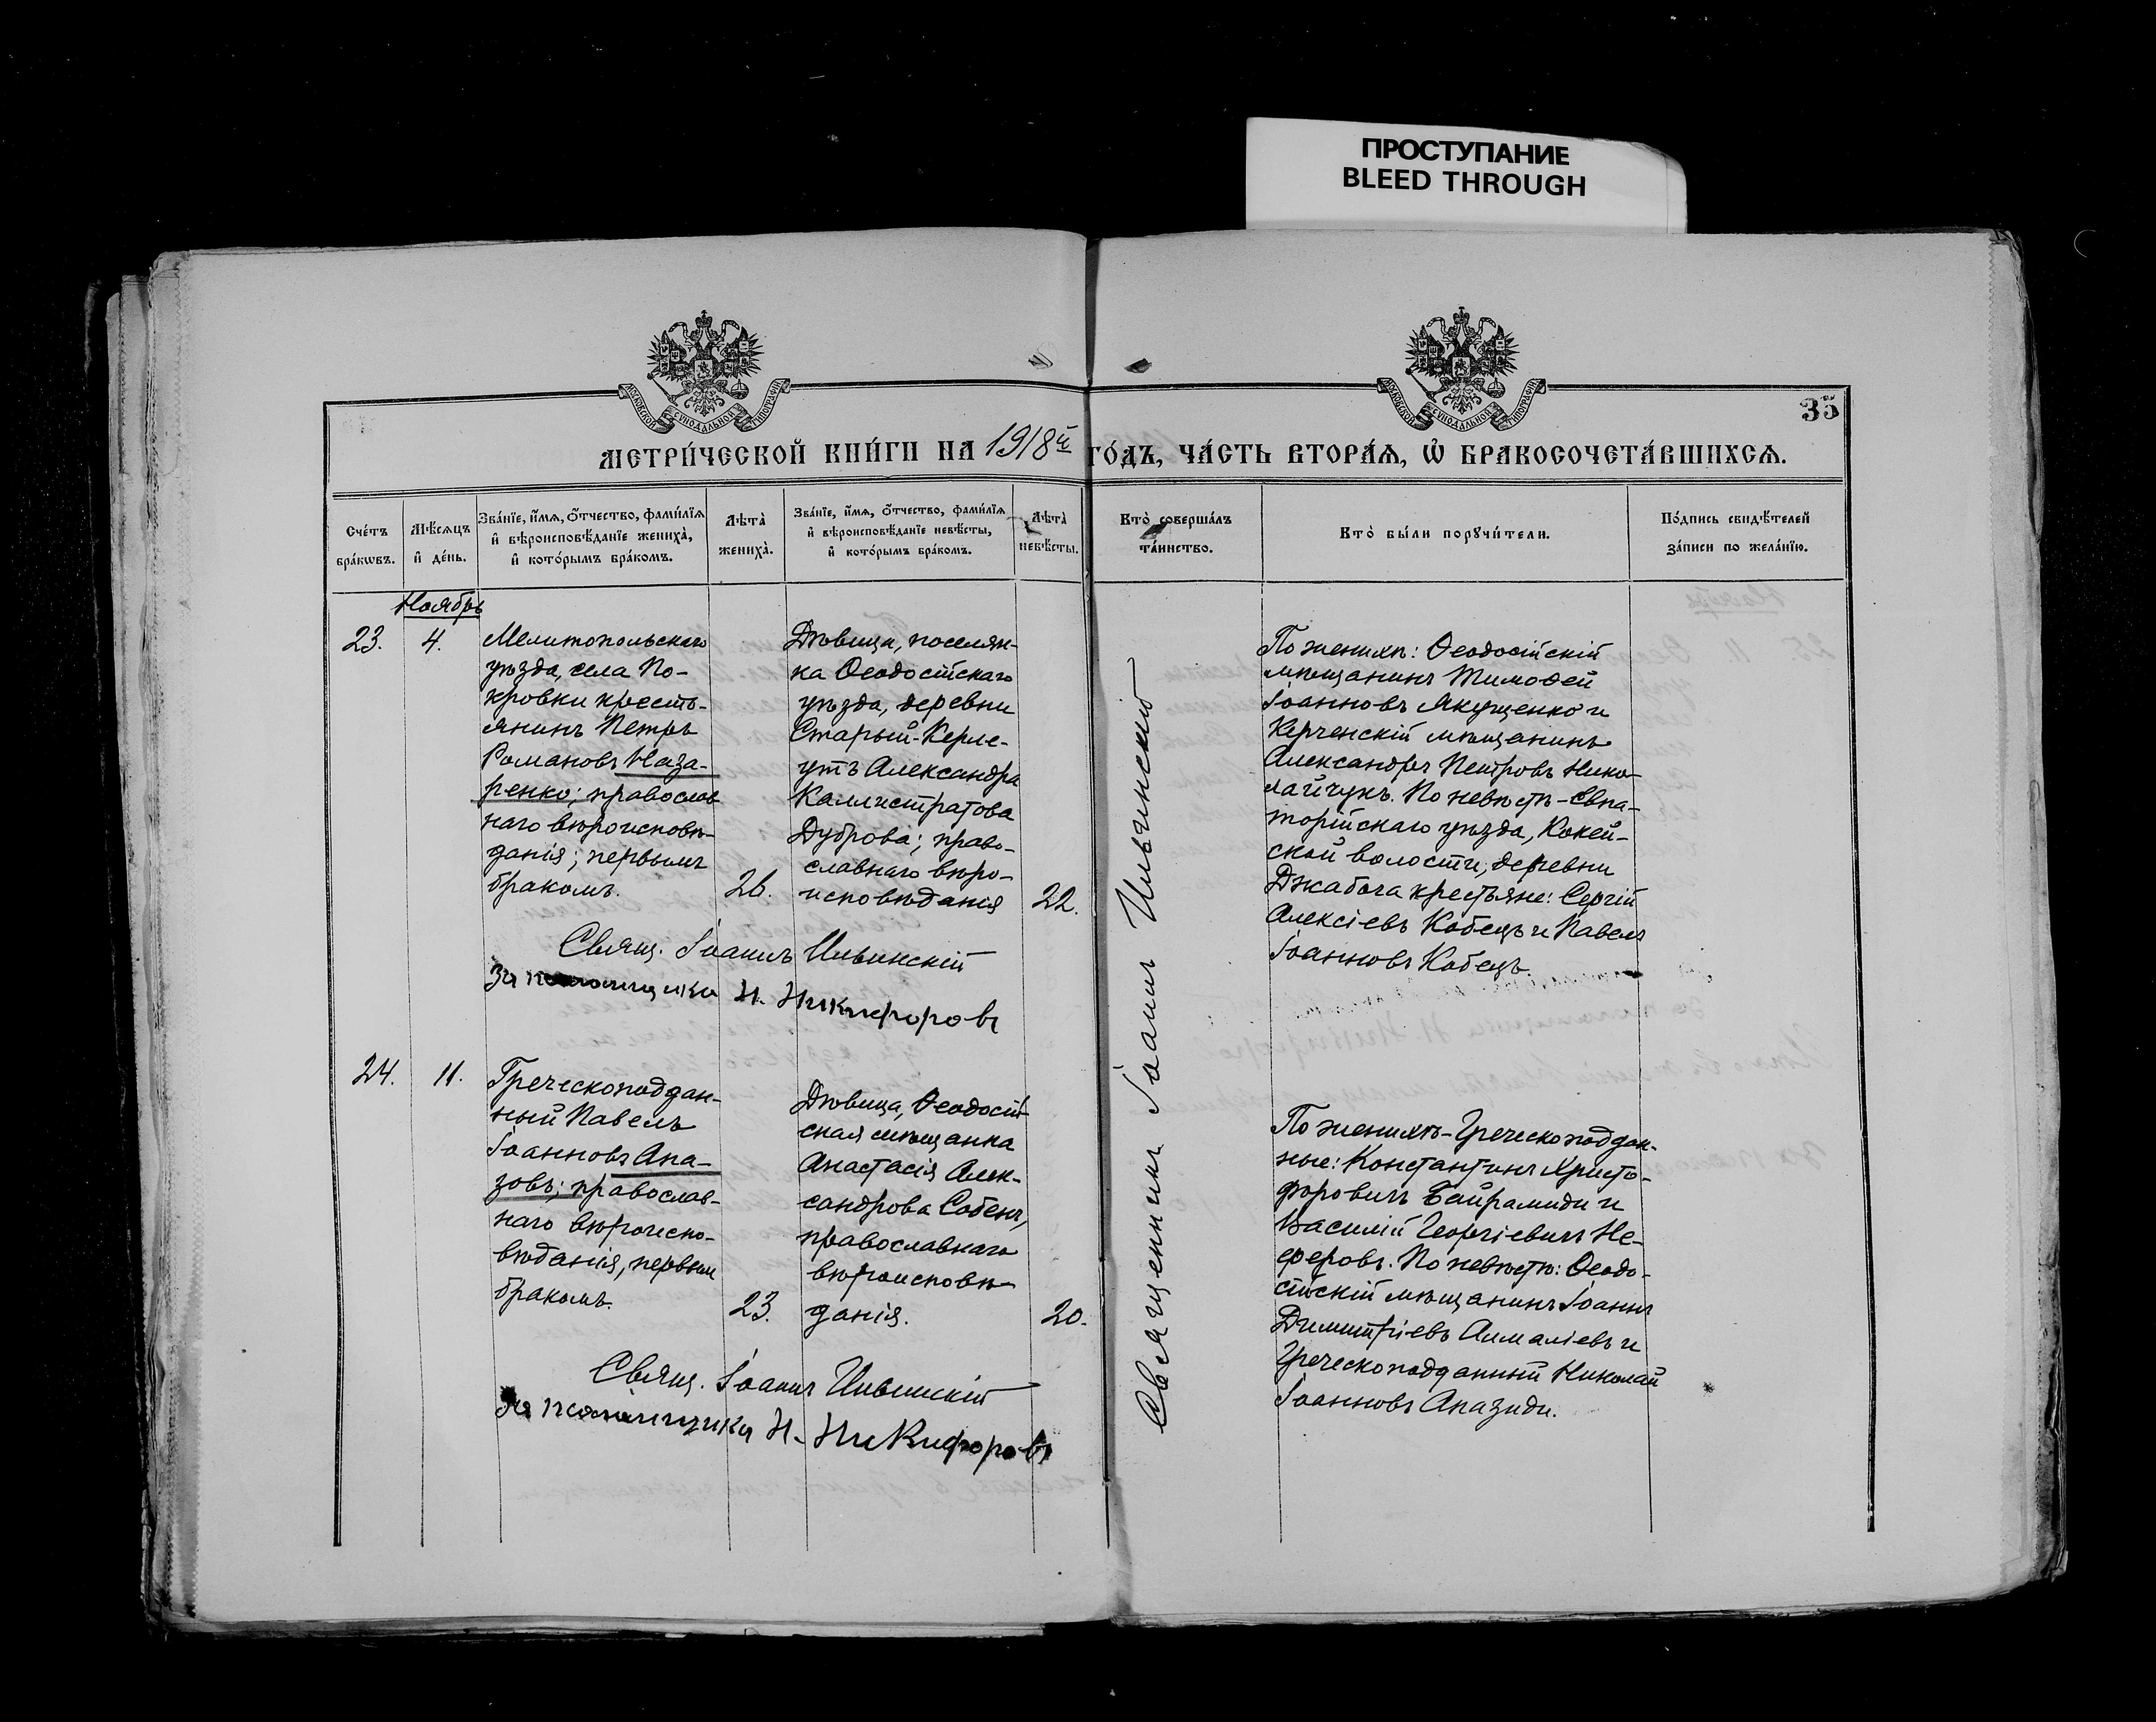 ПРОСТУПАНИЕ
BLEED THROUGH
МОСКОВСКОЙ СѴНОДАЛЬНОЙ ТИПОГРАФІИ
МОСКОВСКОЙ СѴНОДАЛЬНОЙ ТИПОГРАФІИ
35
МЕТРИ́ЧЕСКОЙ КНИ́ГИ НА 1918й ГО́ДЪ, ЧА́СТЬ ВТОРА́Ѧ, Ѡ҆ БРАКОСОЧЕТА́ВШИХСѦ.
Сче́тъ
бра́кѡвъ.
Мѣ́сяцъ
и҆ де́нь.
Зва́нїе, и҆́мя, ѻ҆́тчество, фами́лїя
и҆ вѣроисповѣ́данїе жениха̀,
и҆ кото́рымъ бра́комъ.
Лѣта̀
жениха̀.
Зва́нїе, и҆́мя, ѻ҆́тчество, фами́лїя
и҆ вѣроисповѣ́данїе невѣ́сты,
и҆ кото́рымъ бра́комъ.
Лѣта̀
невѣ́сты.
Кто̀ соверша́лъ
та́инство.
Кто̀ бы́ли порꙋчи́тели.
По́дпись свидѣ́телей
за́писи по жела́нїю.
Ноябрь
23.
4.
Мелитопольскаго
уѣзда, села По-
кровки кресть-
янинъ Петръ
Романовъ Наза-
ренко; православ
наго вѣроисповѣ-
данія; первымъ
бракомъ.
26.
Дѣвица, поселян-
ка Ѳеодосійскаго
уѣзда, деревни
Старый-Керле-
утъ Александра
Каллистратова
Дуброва; право-
славнаго вѣро-
исповѣданія
22.
Священникъ Іоаннъ Ильинскій
По женихѣ: Ѳеодосійскій
мѣщанинъ Тимоѳей
Іоанновъ Якущенко и
Керченскій мѣщанинъ
Александръ Петровъ Нико-
лайчукъ. По невѣстѣ-Евпа-
торійскаго уѣзда, Кокей-
ской волости, деревни
Джабага крестьяне: Сергій
Алексіевъ Кобецъ и Павелъ
Іоанновъ Кобецъ.
Свящ. Іоаннъ Ильинскій
За псаломщика Н. Никифоровъ
24.
11.
Греческоподдан-
ный Павелъ
Іоанновъ Апа-
зовъ; православ-
наго вѣроиспо-
вѣданія, первым
бракомъ.
23.
Дѣвица, Ѳеодосій-
ская мѣщанка
Анастасія Алек-
сандрова Собень,
православнаго
вѣроисповѣ-
данія.
20.
По женихѣ-Греческоподдан-
ные: Константинъ Христо-
форовичъ Байрамиди и
Василій Георгіевичъ Не-
феровъ. По невѣстѣ: Ѳеодо-
сійскій мѣщанинъ Іоаннъ
Димитріевъ Алмаліевъ и
Греческоподданный Николай
Іоанновъ Апазиди.
Свящ. Іоаннъ Ильинскій
За псаломщика Н. Никифоровъ